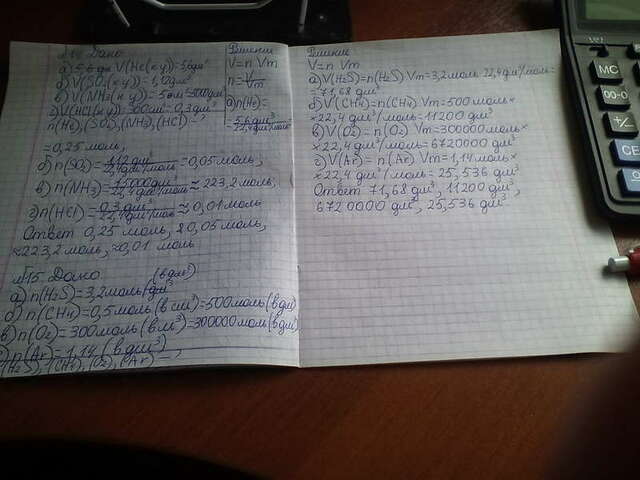 №14 Дано
а) 5,6 дм V(He(н.у.)) = 5,6 дм³
б) V(SO₂(н.у.)) = 1,12 дм³
в) V(NH₃(н.у.)) = 5 =5000 дм³
г) V(HCl(н.у.)) = 300 см³ = 0,3 дм³
n(He), (SO₂), (NH₃), (HCl) —
Решение
V = n Vm
n = V/Vm
а) n(He) =
= 5,6 дм³ / 22,4 дм³/моль =
= 0,25 моль,
б) n(SO₂) = 1,12 дм³ / 22,4 дм³/моль = 0,05 моль,
в) n(NH₃) = 5000 дм³ / 22,4 дм³/моль ≈ 223,2 моль,
г) n(HCl) = 0,3 дм³ / 22,4 дм³/моль ≈ 0,01 моль
Ответ 0,25 моль, 0,05 моль,
≈ 223,2 моль, ≈ 0,01 моль
№15 Дано (в дм³)
а) n(H₂S) = 3,2 моль (дм³
б) n(CH₄) = 0,5 моль (в см³) = 500 моль (в дм
в) n(O₂) = 300 моль (в м³) = 300000 моль (в дм
n(Ar) = 1,14 (в дм³)
(H₂S), (CH₄), (O₂), (Ar) — ,
Решение
V = n Vm
а) V(H₂S) = n(H₂S) Vm = 3,2 моль 22,4 дм³/моль =
= 71,68 дм³
б) V(CH₄) = n(CH₄) Vm = 500 моль ×
× 22,4 дм³/моль = 11200 дм³
в) V(O₂) = n(O₂) Vm = 300000 моль ×
× 22,4 дм³/моль = 6720000 дм³
г) V(Ar) = n(Ar) Vm = 1,14 моль ×
× 22,4 дм³/моль = 25,536 дм³
Ответ 71,68 дм³, 11200 дм³,
6720000 дм³, 25,536 дм³
MC
00-0
+/-
CE